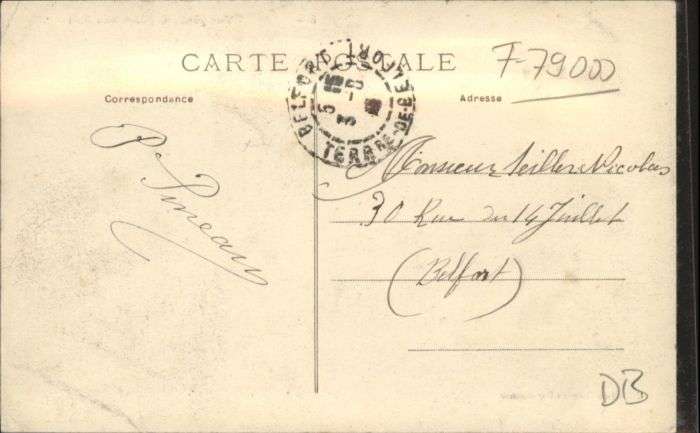 CARTE POSTALE
F-79000
Correspondance
Adresse
BELFORT
TERR RE-DE-BELFORT
P. Pineau
Monsieur Seiller Nicolas
30 Rue du 14 Juillet
(Belfort)
DB